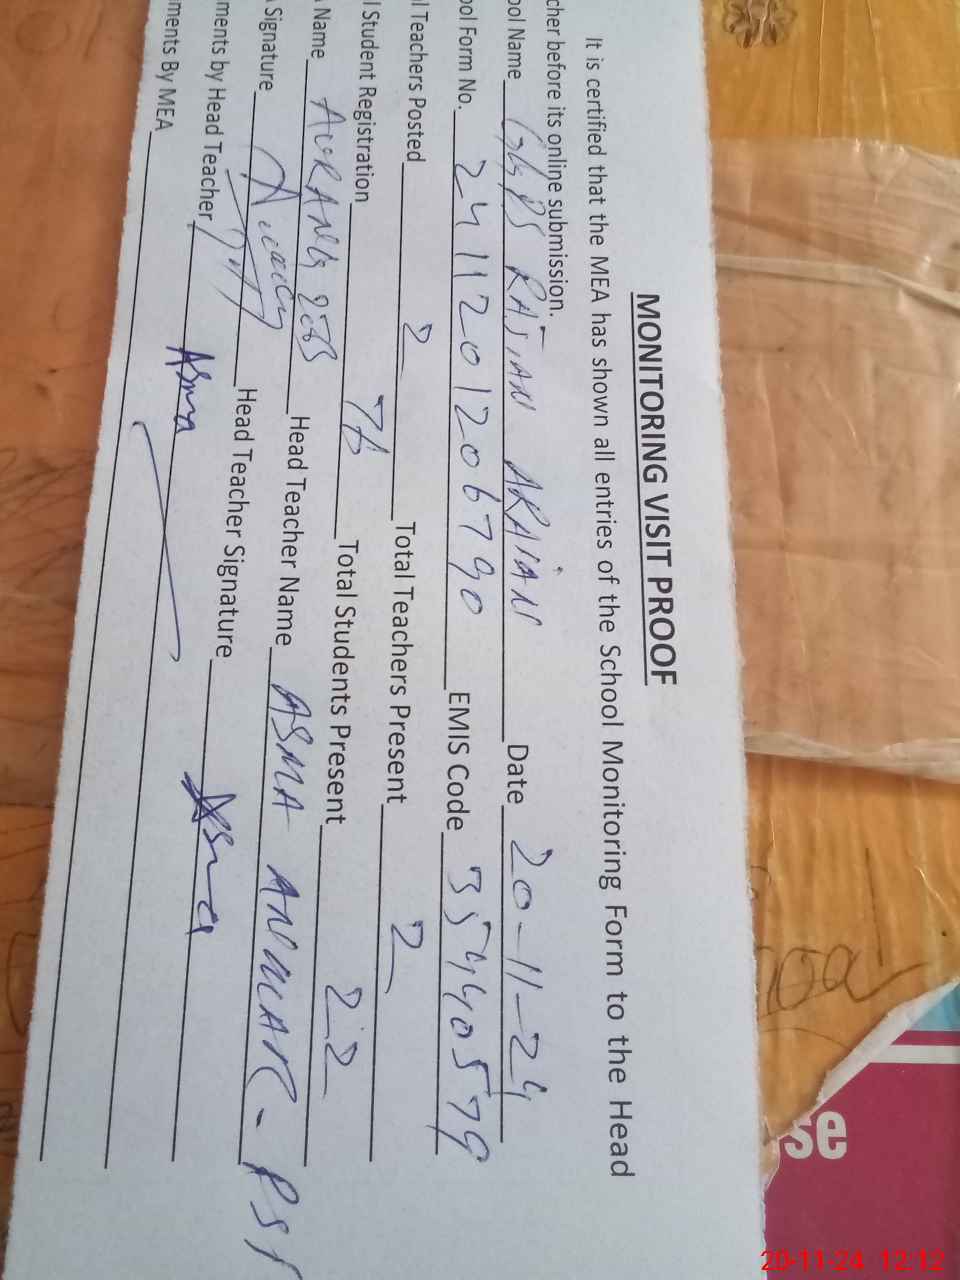 MONITORING VISIT PROOF
It is certified that the MEA has shown all entries of the School Monitoring Form to the Head
cher before its online submission.
ool Name GGPS RAJIAN ARAIAN Date 20-11-24
ool Form No. 2411201206790 EMIS Code 35440579
l Teachers Posted 2 Total Teachers Present 2
l Student Registration 76 Total Students Present 22
Name AURANG ZEB Head Teacher Name ASMA ANWAR - PST
Signature Head Teacher Signature Asma
ments by Head Teacher Asma
ments By MEA
se
20-11-24 12:12